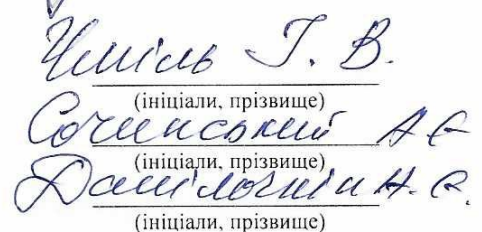 Чміль Т. В.
(ініціали, прізвище)
Сочинський А Є
(ініціали, прізвище)
Н. Є.
(ініціали, прізвище)